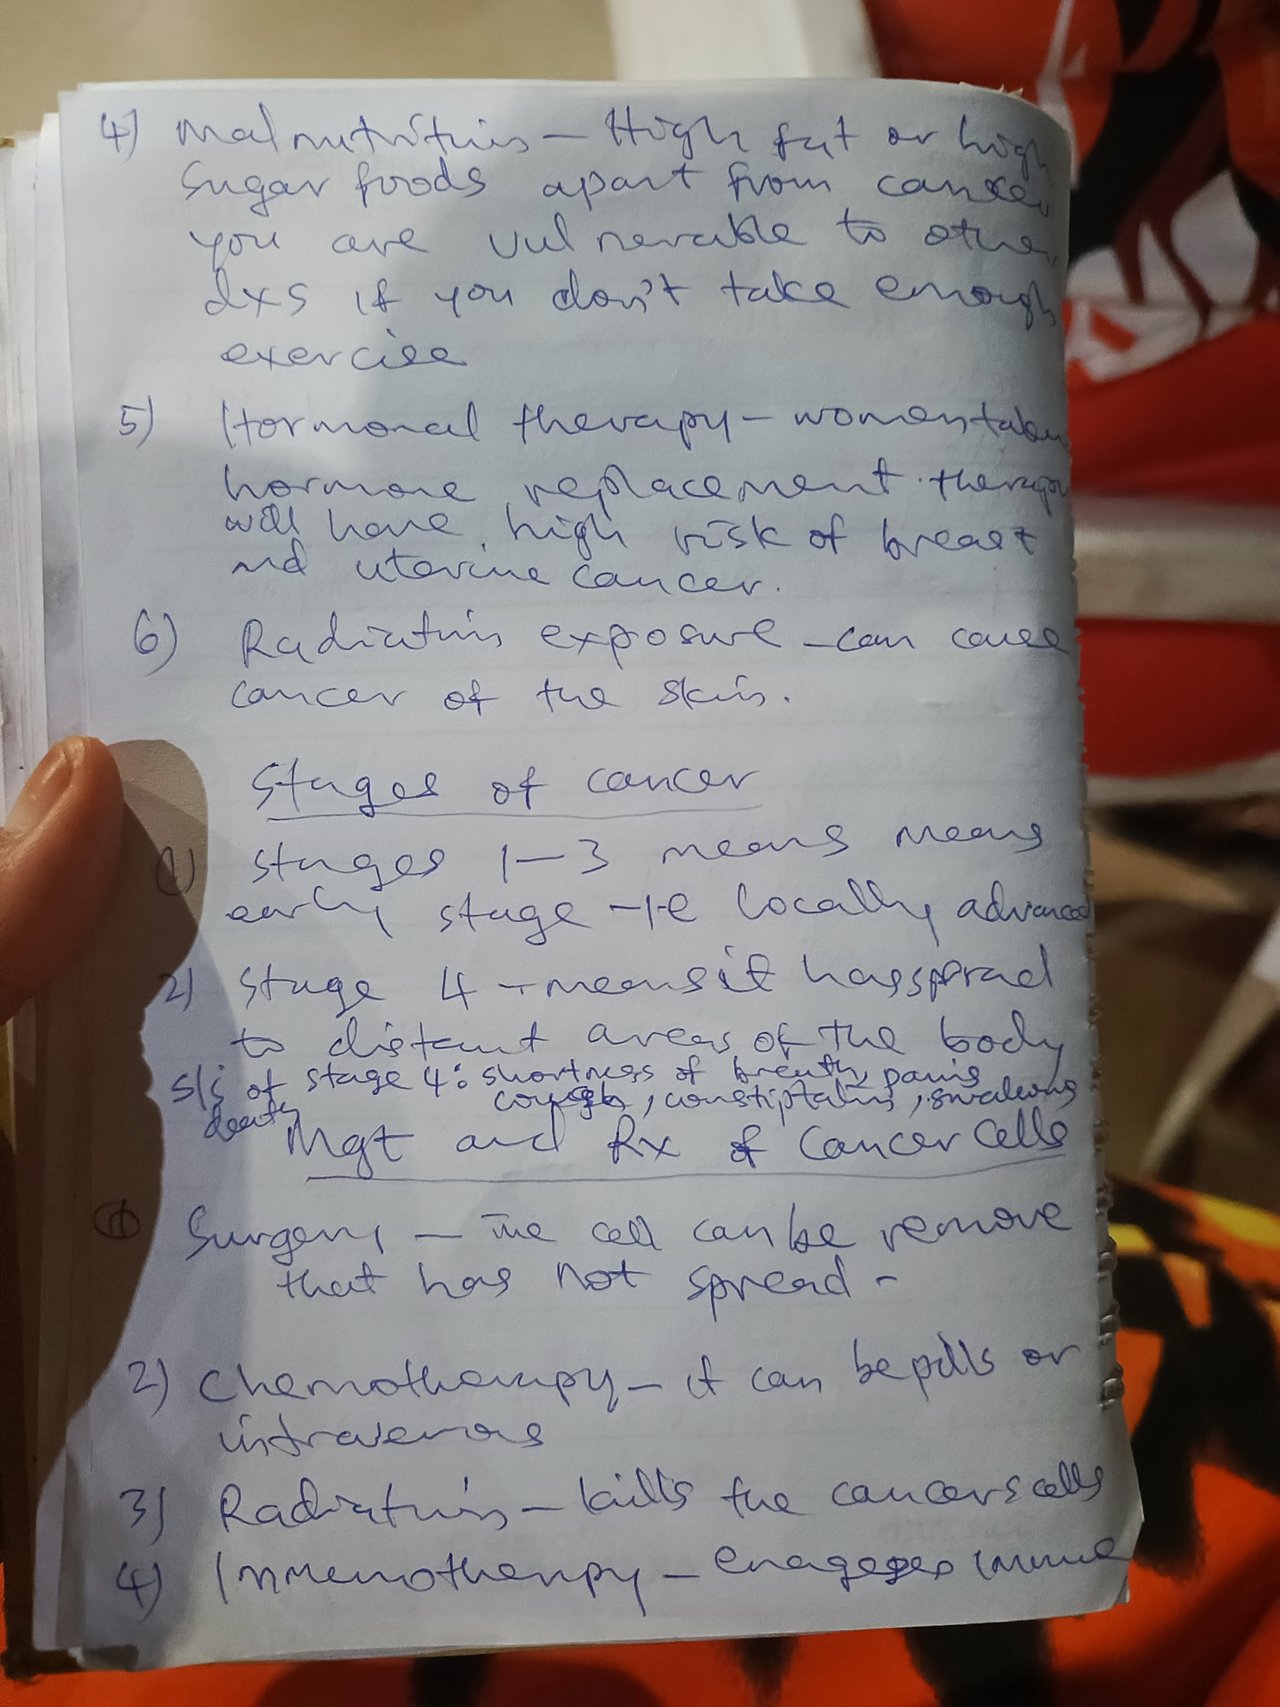 4) Malnutrition – High fat or high
Sugar foods apart from cancer
you are vulnerable to other
dxs if you don't take enough
exercise
5) Hormonal therapy – women taken
hormone replacement therapy
will have high risk of breast
and uterine cancer.
6) Radiation exposure – can cause
cancer of the skin.
Stages of cancer
1) Stages 1–3 means means
early stage – i.e locally advanced
2) Stage 4 – means it has sprad
to distant areas of the body
S/s of stage 4: shortness of breath, pains
cough, constiptation,
death
Mgt and Rx of Cancer Cells
1) Surgery – The cell can be remove
that has not spread –
2) Chemotherapy – it can be pills or
intravenous
3) Radiation – kills the cancers cells
4) Immenotherapy – enageges immune